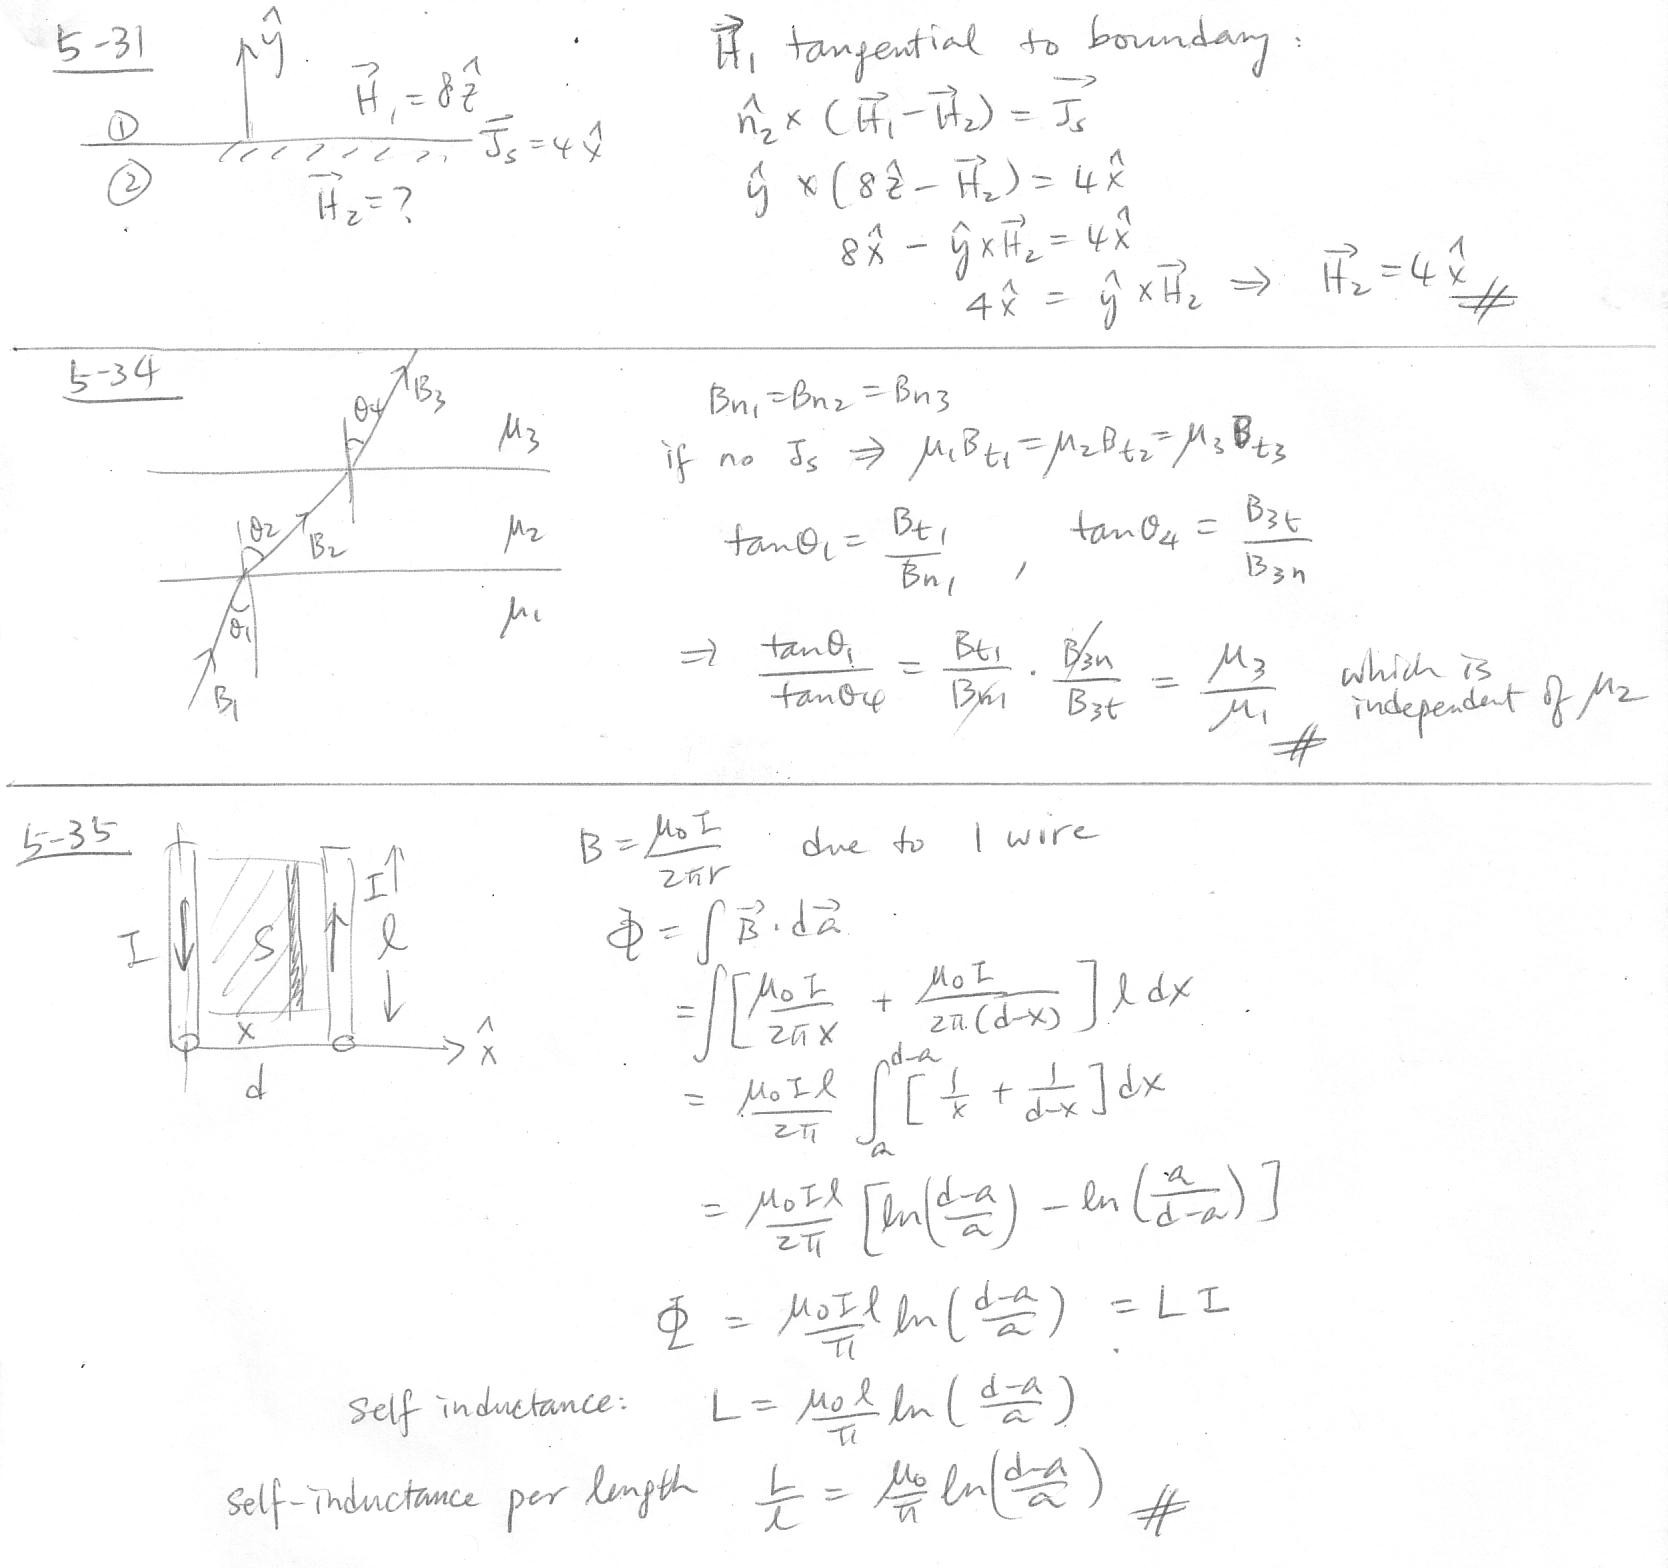 5-31
ŷ
H⃗₁ = 8ẑ
①
J⃗s = 4x̂
②
H⃗₂ = ?
H⃗₁ tangential to boundary:
n̂₂ × (H⃗₁ - H⃗₂) = J⃗s
ŷ × (8ẑ - H⃗₂) = 4x̂
8x̂ - ŷ×H⃗₂ = 4x̂
4x̂ = ŷ×H⃗₂ ⇒ H⃗₂ = 4x̂ #
5-34
θ4
B3
μ3
θ2
B2
μ2
θ1
μ1
B1
Bn1 = Bn2 = Bn3
if no Js ⇒ μ1Bt1 = μ2Bt2 = μ3Bt3
tanθ1 = Bt1/Bn1 , tanθ4 = B3t/B3n
⇒ tanθ1/tanθ4 = Bt1/Bn1 · B3n/B3t = μ3/μ1 which is independent of μ2
#
5-35
I
S
I
↑
l
↓
x
x̂
d
B = μ0I/2πr due to 1 wire
Φ = ∫B⃗·da⃗
= ∫[μ0I/2πx + μ0I/2π(d-x)] l dx
= μ0Il/2π ∫_a^{d-a} [1/x + 1/d-x] dx
= μ0Il/2π [ln(d-a/a) - ln(a/d-a)]
Φ = μ0Il/π ln(d-a/a) = LI
self inductance: L = μ0l/π ln(d-a/a)
self-inductance per length L/l = μ0/π ln(d-a/a) #